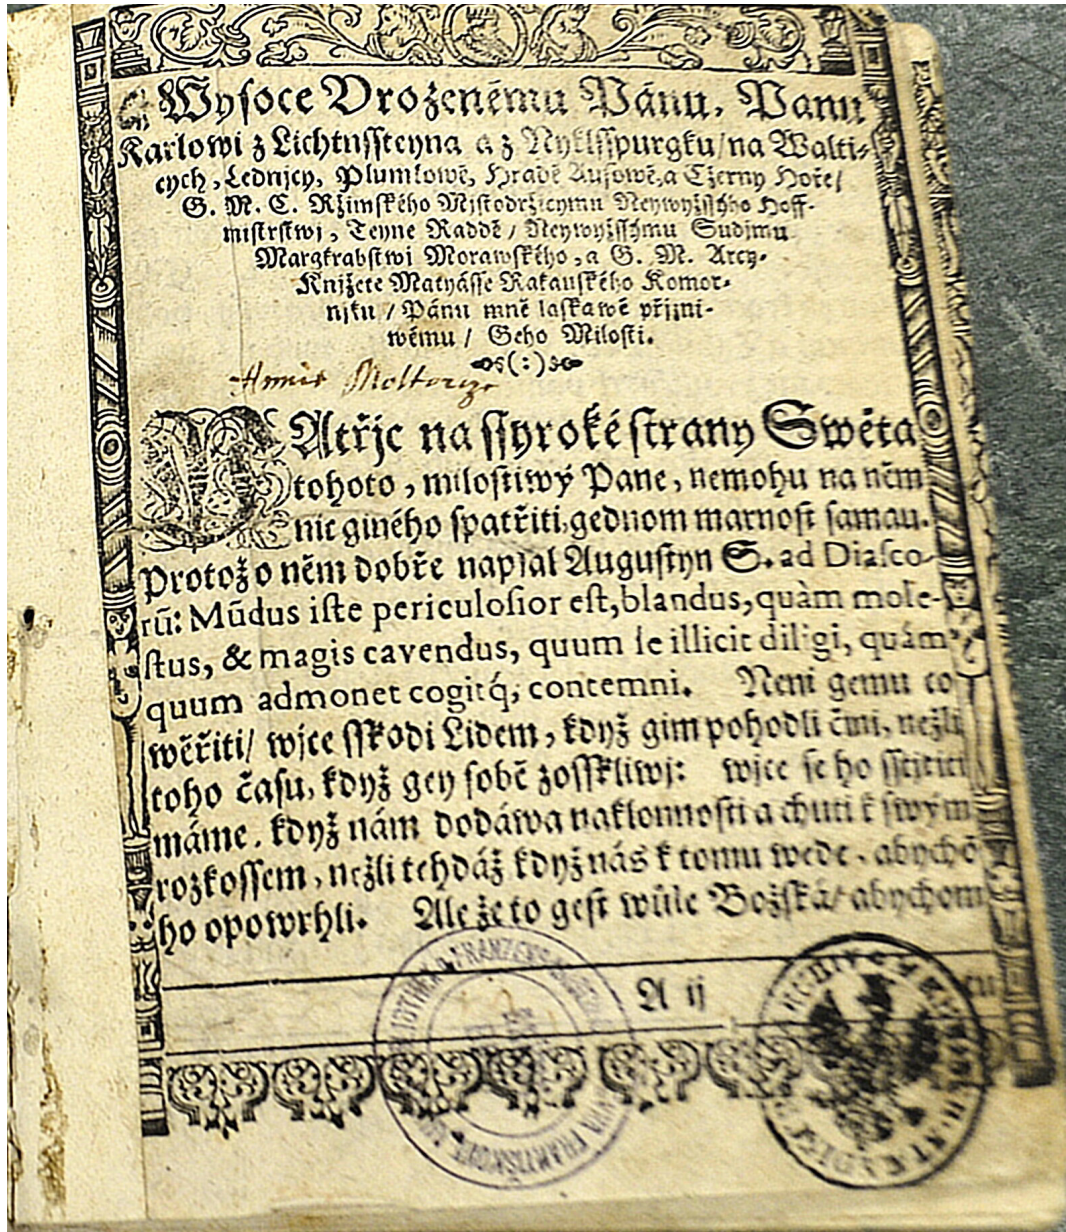 Wysoce Vroženému Pánu, Panu
Karlowi z Lichtnssteyna a z Nyklsspurgku / na Walti-
cych, Lednjcy, Plumlowě, Hradě Ausowě, a Cžerny Hoře /
G. M. C. Ržimského Mjstodržjcymu Neywyžssýho Hoff-
mistrstwj, Teyne Raddě / Neywyžssýmu Sudjmu
Margkrabstwj Morawského, a G. M. Arcy-
Knjžete Matyásse Rakauského Komor-
njku / Pánu mně laskawě přjzni-
wému / Geho Milosti.
(:)
PAtřjc na ssyroké strany Swěta
tohoto, milostiwý Pane, nemohu na něm
nic giného spatřiti, gednom marnost samau.
Protož o něm dobře napsal Augustyn S. ad Diasco-
rū: Mūdus iste periculosior est, blandus, quàm mole-
stus, & magis cavendus, quum se illicit diligi, quám
quum admonet cogitq́; contemni. Nenj gemu co
wěřiti / wjce sskodj Lidem, když gim pohodlj činj, nežli
toho času, když gey sobě zosskliwj: wjce se ho sstjtiti
máme, když nám dodáwa naklonnosti a chuti k swým
rozkossem, nežli tehdáž když nás k tomu wede, abychō
ho opowrhli. Ale že to gest wůle Božská / abychom
A ij